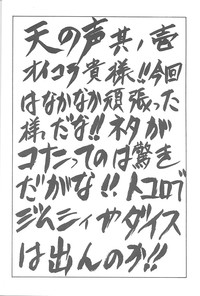 天の声其ノ壱
オイコラ貴様!!今回
はなかなか頑張った
様だな!!ネタが
コナたってのは驚き
だがな!!トコロで
ジムニィやダイス
は出んのか!!